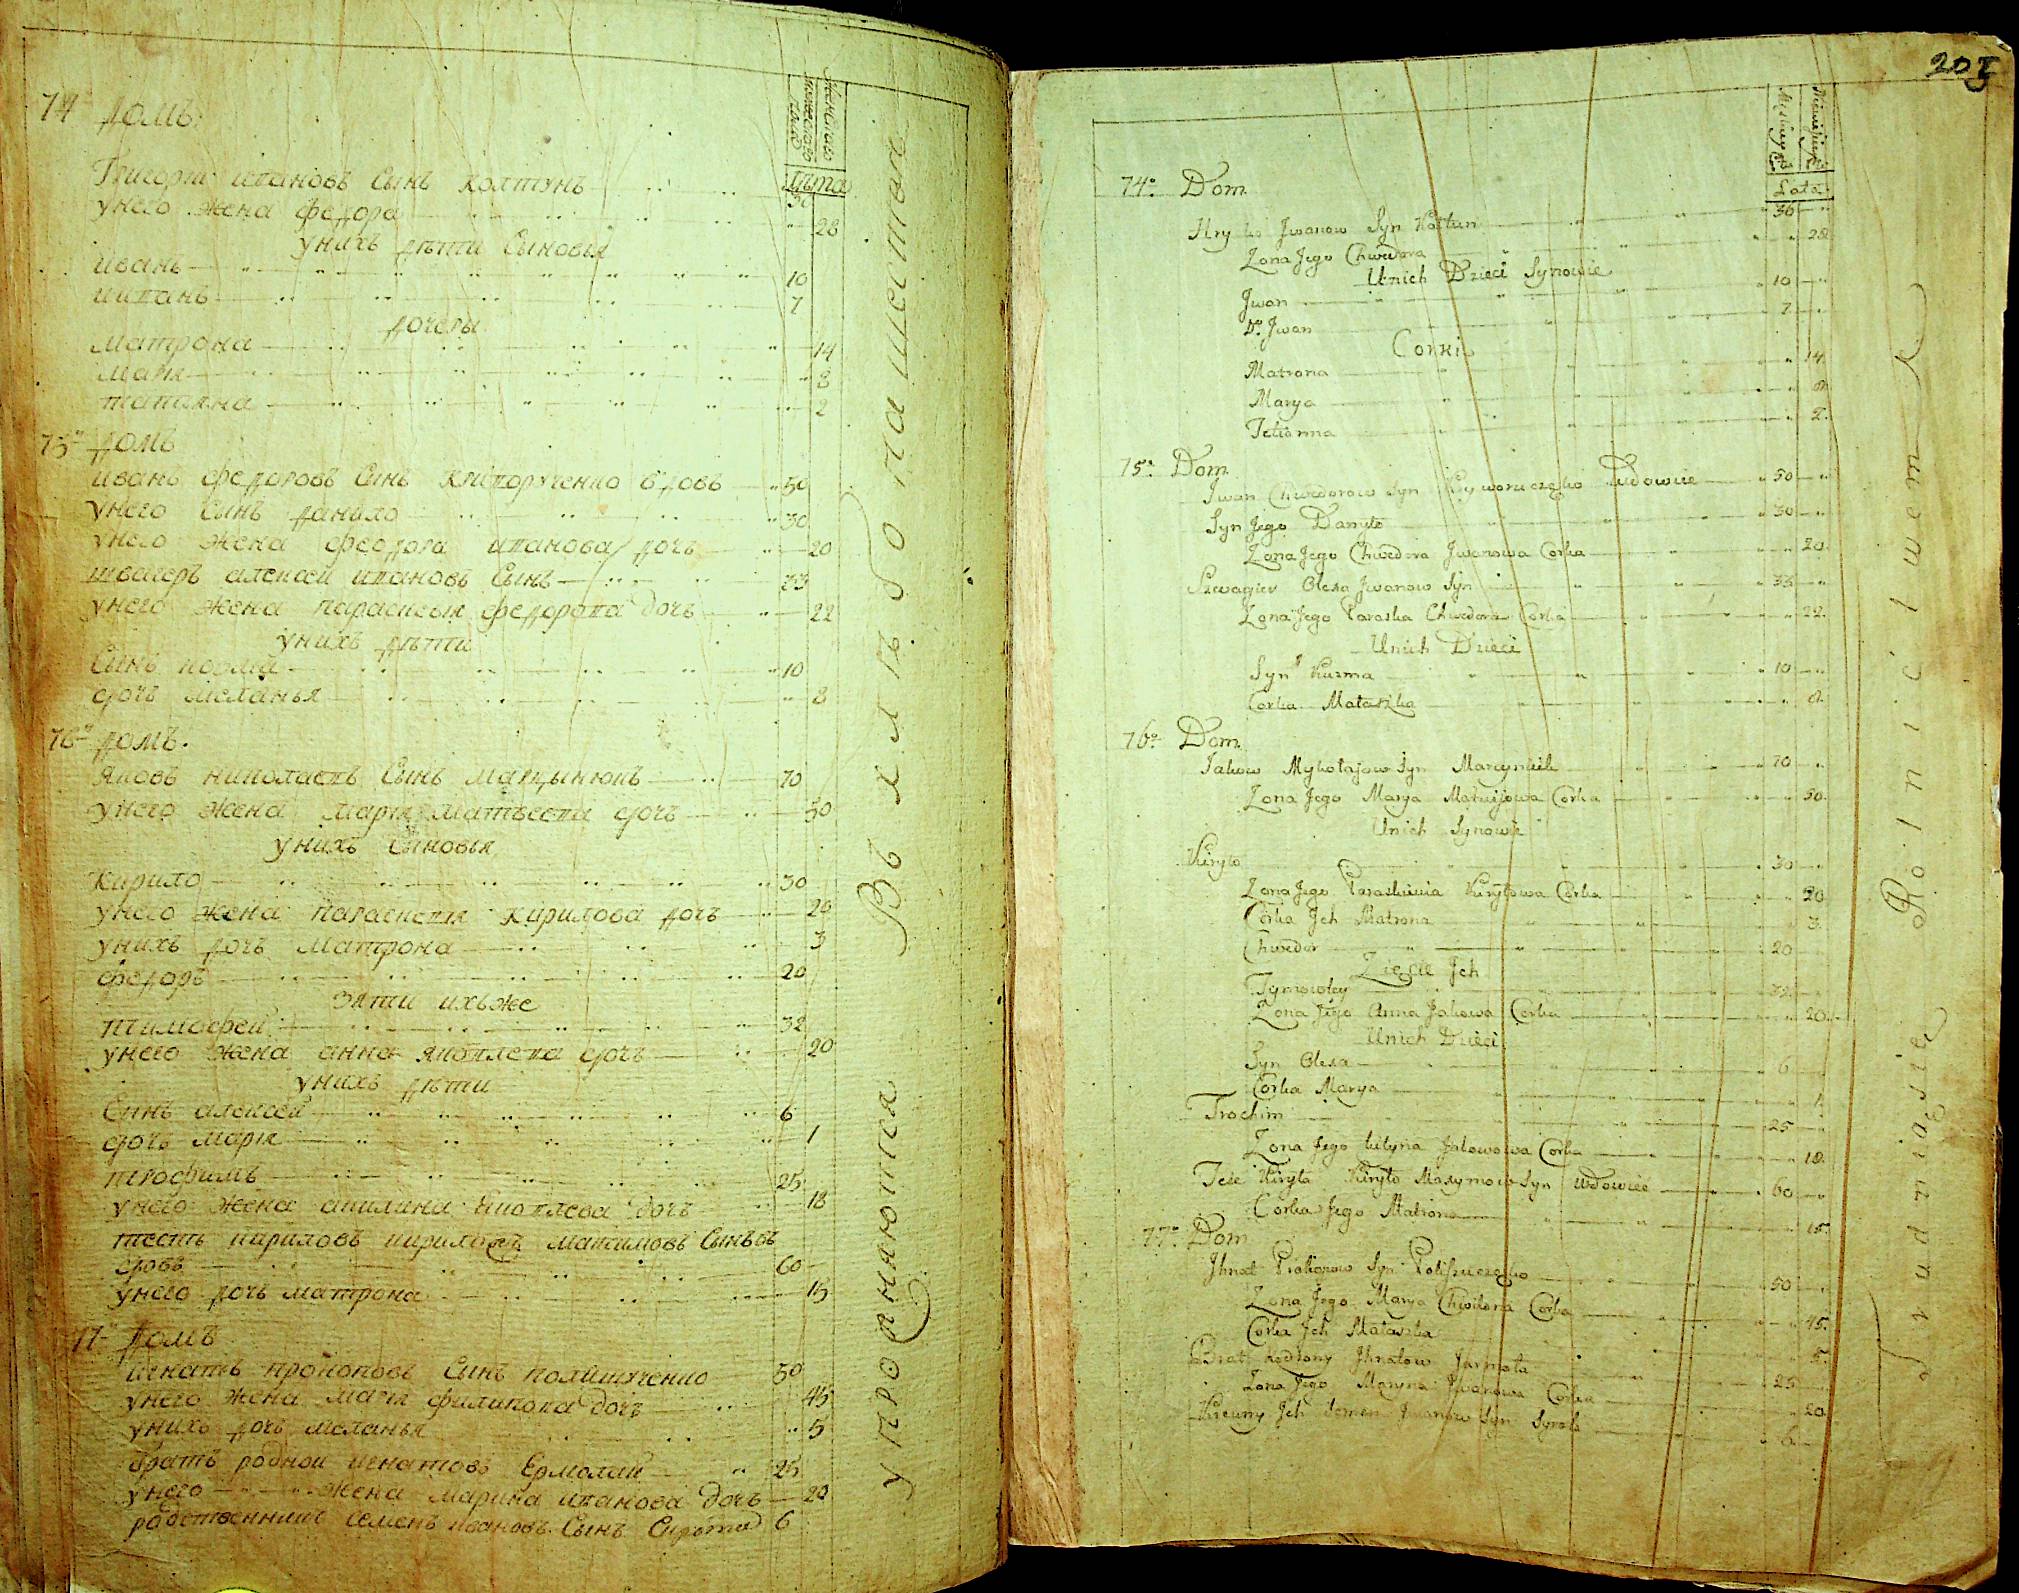 74 домъ
женскаго
мужескаго
полу
лѣта
Григори ивановъ Сынъ колтунъ 36
унего жена федора 28
унихъ дѣти Сыновья
иванъ 10
иванъ 7
дочеры
матрона 14
мария 8
татияна 2
75 домъ
иванъ федоровъ Сынъ криворученко вдовъ 50
унего Сынъ данило 30
унего жена феодора иванова дочъ 20
швагеръ алексей ивановъ Сынъ 33
унего жена параскевия федорова дочъ 22
унихъ дѣти
Сынъ козма 10
дочъ меланья 8
76 домъ.
Яковъ николаевъ Сынъ марцынюкъ 70
унего жена мария матвеева дочъ 50
унихъ Сыновья
кирило 30
унего жена параскевия кирилова дочъ 20
унихъ дочъ матрона 3
федоръ 20
зяти ихъже
тимофей 32
унего жена анна яковлева дочъ 20
унихъ дѣти
Сынъ алексей 6
дочъ мария 1
трофимъ 25
унего жена акилина яковлева дочъ 18
тесть кириловъ кирило максимовъ Сынъ в
довъ 60
унего дочъ матрона 15
77 домъ
игнатъ прокоповъ Сынъ полищученко 50
унего жена мария филипова дочъ 45
унихъ дочъ меланья 5
братъ родной игнатовъ Ермолай 25
унего жена марина иванова дочъ 20
родственникъ семенъ ивановъ Сынъ Сирота 6
Въ хлѣбопашествѣ
упрожняются
205
Męskiey
Niewieściey
Lata
74º Dom
Hryćko Jwanow Syn Kołtun 36
Zona Jego Chwedora 28
Unich Dzieci Synowie
Jwan 10
Dº Jwan 7
Corki
Matrona 14
Marya 8
Tetianna 2
75º Dom
Jwan Chwedorow Syn Krzyworuczęko Wdowiec 50
Syn Jego Danyło 30
Zona Jego Chwedora Jwanowa Corka 20
Szwagier Olexa Jwanow Syn 33
Zona Jego Paraska Chwedora Corka 22
Unich Dzieci
Syn Kuzma 10
Corka Małaszka 8
76º Dom
Jakow Mykołajow Syn Marcyniuk 70
Zona Jego Marya Matwijowa Corka 50
Unich Synowie
Kiryło 30
Zona Jego Paraskiwia Kiryłowa Corka 20
Corka Jch Matrona 3
Chwedor 20
Zięcie Jch
Tymowtey 32
Zona Jego Anna Jakowa Corka 20
Unich Dzieci
Syn Olexa 6
Corka Marya 1
Trochim 25
Zona Jego Kulyna Jakowowa Corka 18
Teść Kiryła Kiryło Maxymow Syn Wdowiec 60
Corka Jego Matrona 15
77º Dom
Jhnat Prokopow Syn Poliszuczęko 50
Zona Jego Marya Chwilona Corka 45
Corka Jch Małaszka 5
Brat Rodzony Jhnatow Jarmoła 25
Zona Jego Maryna Jwanowa Corka 20
Krewny Jch Semen Jwanow Syn Syrota 6
Rolnictwem
Trudnią się